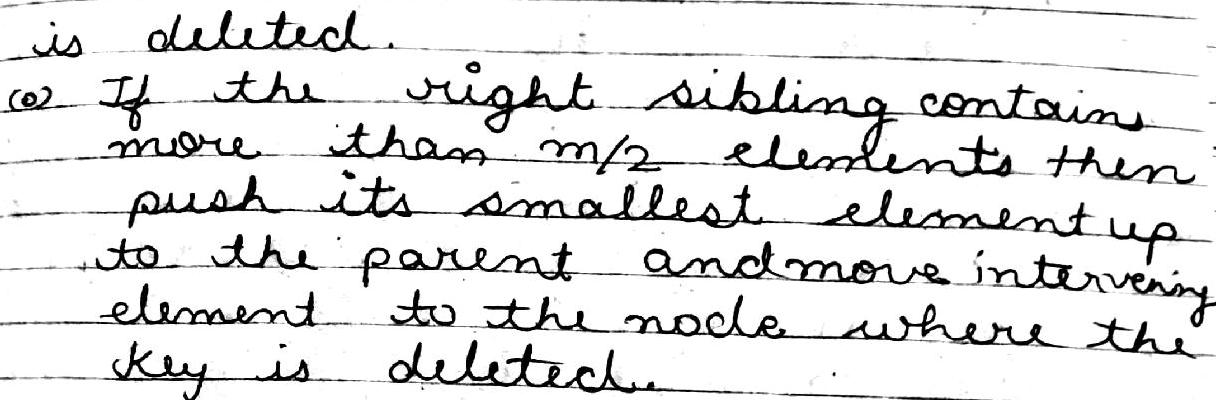 is deleted.
(o) If the right sibling contains
more than m/2 elements then
push its smallest element up
to the parent and move intervening
element to the node where the
key is deleted.